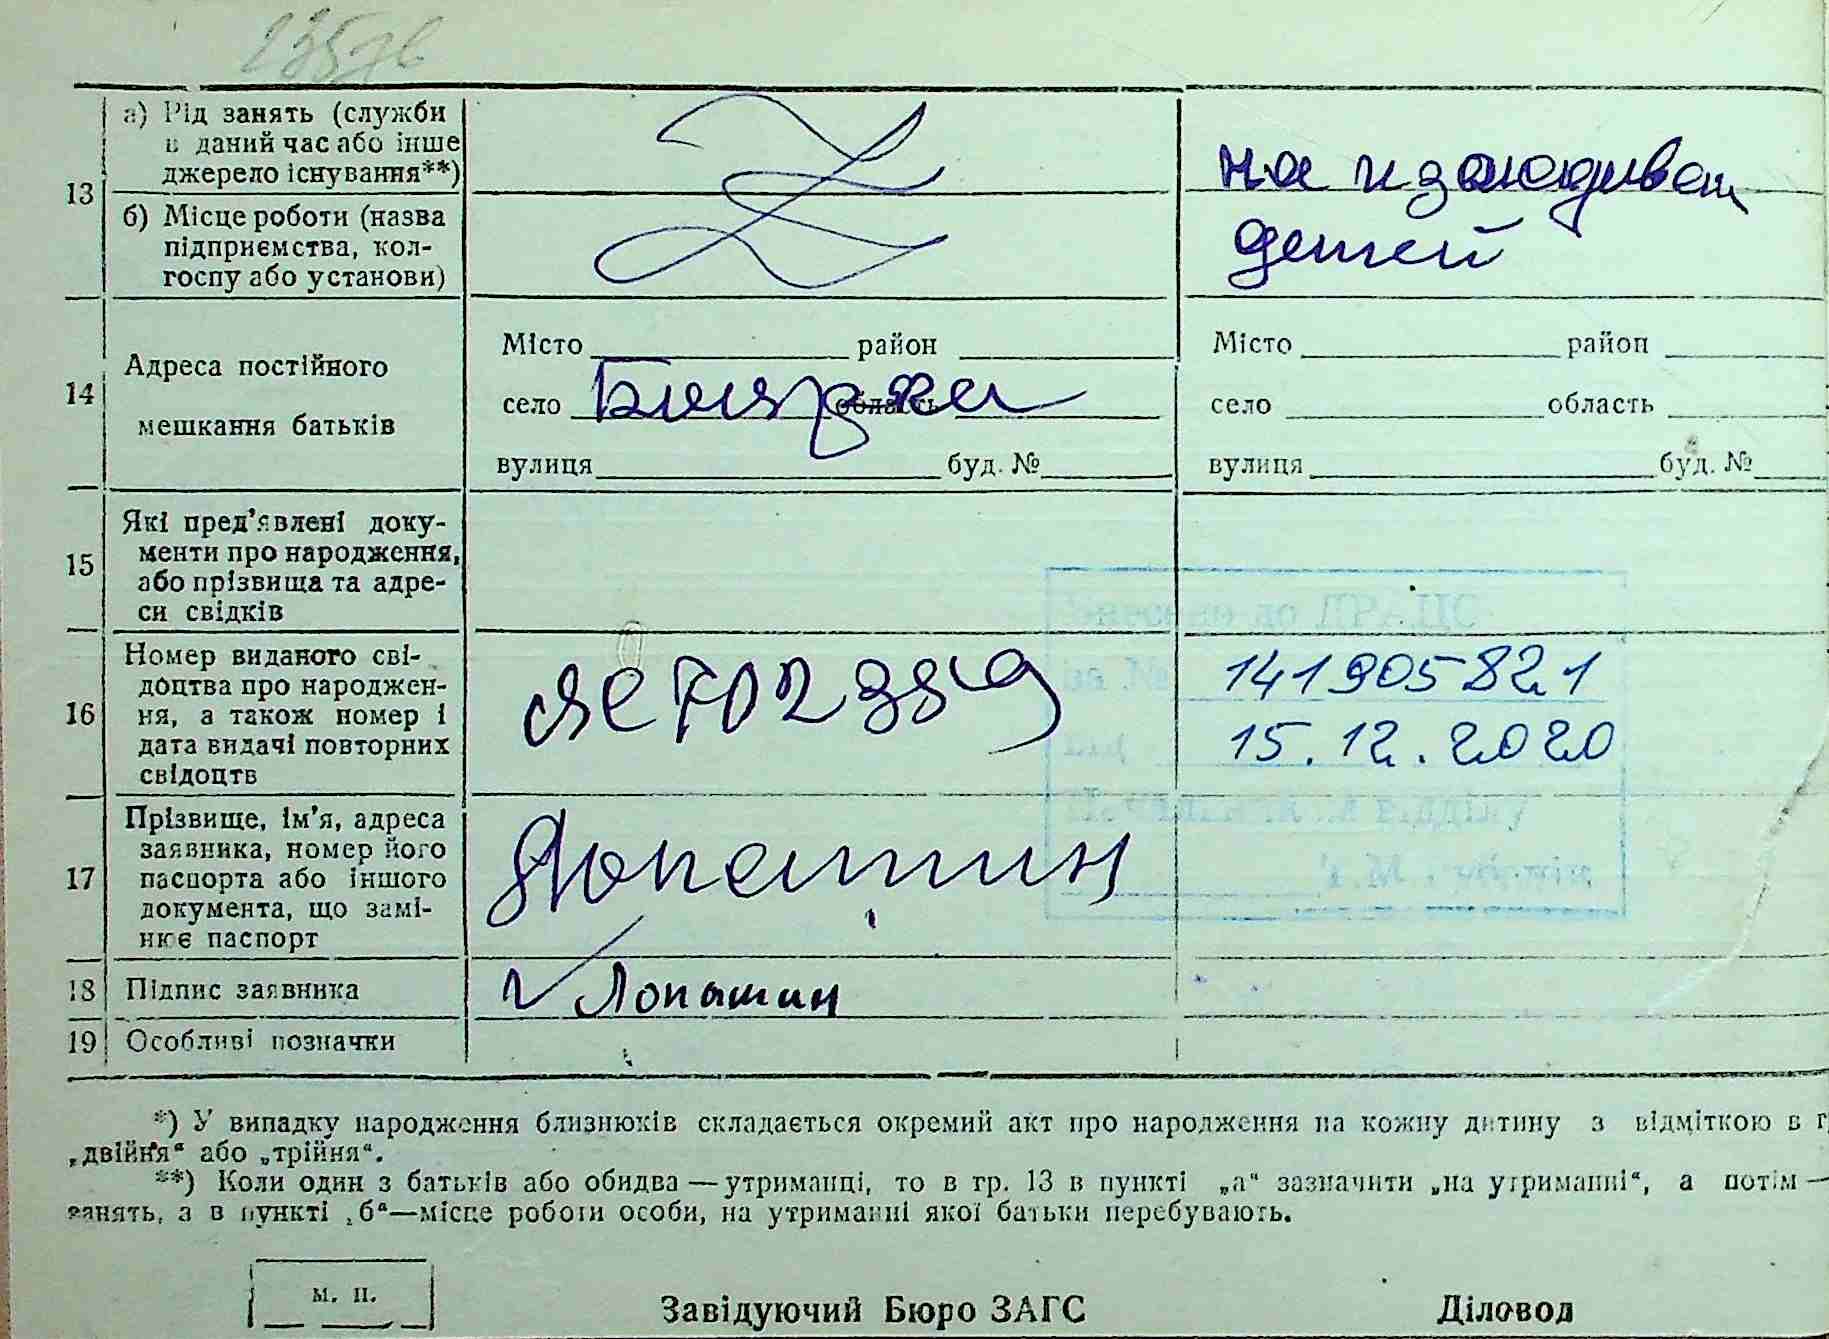 13
а) Рід занять (служби
в даний час або інше
джерело існування**)
б) Місце роботи (назва
підприємства, кол-
госпу або установи)
на
детей
14
Адреса постійного
мешкання батьків
Місто район
село область
вулиця буд. №
Місто район
село область
вулиця буд. №
15
Які пред’явлені доку-
менти про народження,
або прізвища та адре-
си свідків
16
Номер виданого сві-
доцтва про народжен-
ня, а також номер і
дата видачі повторних
свідоцтв
Внесено до ДРАЦС
за № 141905821
від 15.12.2020
Начальник відділу
17
Прізвище, ім’я, адреса
заявника, номер його
паспорта або іншого
документа, що замі-
нює паспорт
Лопатин
18
Підпис заявника
Лопатин
19
Особливі позначки
*) У випадку народження близнюків складається окремий акт про народження на кожну дитину з відміткою в г
„двійня“ або „трійня“.
**) Коли один з батьків або обидва — утриманці, то в гр. 13 в пункті „а“ зазначити „на утриманні“, а потім —
занять, а в пункті „б“ — місце роботи особи, на утриманні якої батьки перебувають.
м. п.
Завідуючий Бюро ЗАГС
Діловод